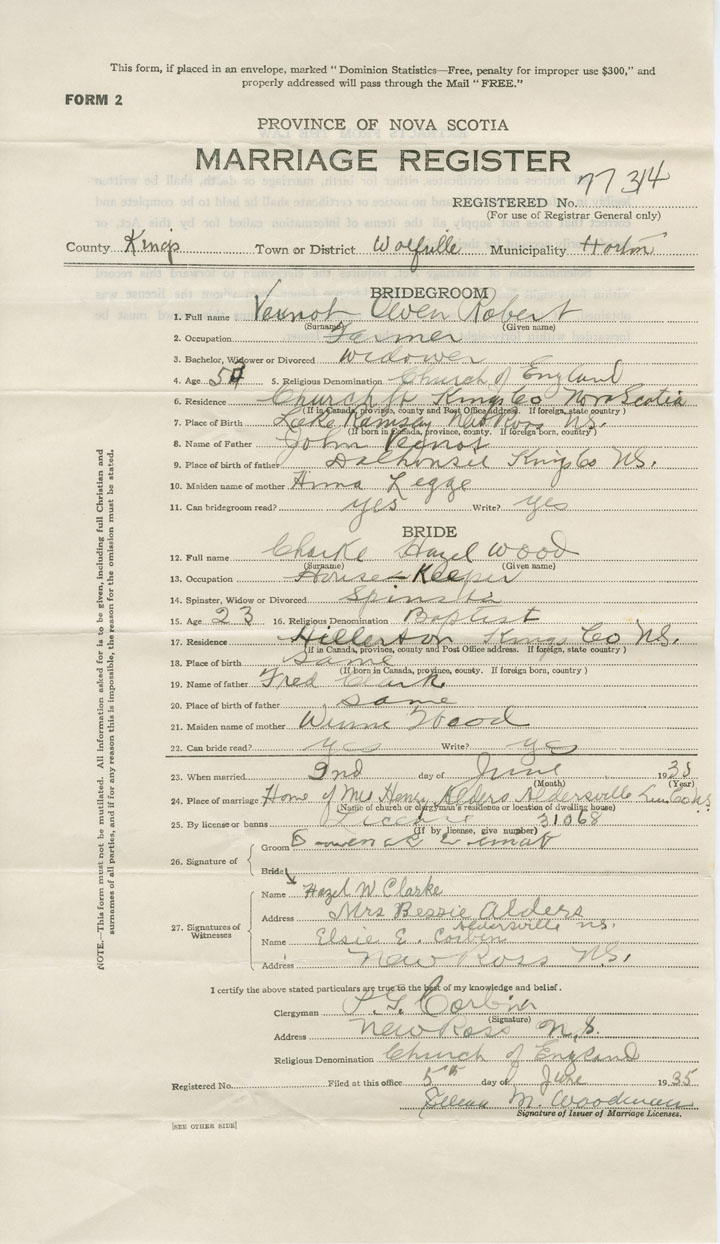 This form, if placed in an envelope, marked "Dominion Statistics—Free, penalty for improper use $300," and
properly addressed will pass through the Mail "FREE."
FORM 2
PROVINCE OF NOVA SCOTIA
MARRIAGE REGISTER
77314
REGISTERED No.
(For use of Registrar General only)
County Kings Town or District Wolfville Municipality Horton
BRIDEGROOM
1. Full name Vernot Owen Robert
(Surname) (Given name)
2. Occupation Farmer
3. Bachelor, Widower or Divorced Widower
4. Age 5 5. Religious Denomination Church of England
6. Residence Church St Kings Co Nova Scotia
(If in Canada, province, county and Post Office address. If foreign, state country)
7. Place of Birth Lake Ramsay New Ross N.S.
(If born in Canada, province, county. If foreign born, country)
8. Name of Father John Vernot
9. Place of birth of father Dalhousie Kings Co NS.
10. Maiden name of mother Anna Legge
11. Can bridegroom read? yes Write? yes
BRIDE
12. Full name Clarke Hazel Wood
(Surname) (Given name)
13. Occupation House-Keeper
14. Spinster, Widow or Divorced Spinster
15. Age 23 16. Religious Denomination Baptist
17. Residence Hillerton Kings Co NS.
(If in Canada, province, county and Post Office address. If foreign, state country)
18. Place of birth Same
(If born in Canada, province, county. If foreign born, country)
19. Name of father Fred Clark
20. Place of birth of father same
21. Maiden name of mother Winnie Wood
22. Can bride read? yes Write? yes
23. When married 2nd day of June 1935
(Month) (Year)
24. Place of marriage Home of Mrs Henry Alders Aldersville Lun. Co N.S
(Name of church or clergyman's residence or location of dwelling house)
25. By license or banns License 31068
(If by license, give number)
26. Signature of
Groom
Bride
27. Signatures of Witnesses
Name Hazel W Clarke
Address Mrs Bessie Alders
Aldersville N.S.
Name Elsie E. Corbin
Address New Ross N.S.
I certify the above stated particulars are true to the best of my knowledge and belief.
Clergyman Corbin
(Signature)
Address New Ross N.S.
Religious Denomination Church of England
Registered No. Filed at this office 5th day of June 1935
M. Woodman
Signature of Issuer of Marriage Licenses.
[SEE OTHER SIDE]
NOTE.—This form must not be mutilated. All information asked for is to be given, including full Christian and
surnames of all parties, and if for any reason this is impossible, the reason for the omission must be stated.